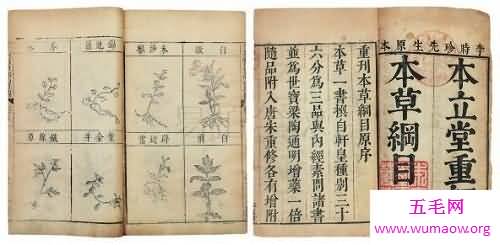 李時珍先生原本
本立堂重
本草綱目
重刊本草綱目原序
本草一書撰自軒皇種別三十
六分為三品與內經素問諸書
並為世寶梁陶通明增藥一倍
隨品附入唐宋重修各有增
錦地羅
白前
辟虺雷
紫金牛
鐵線草
五毛网
www.wumaow.org